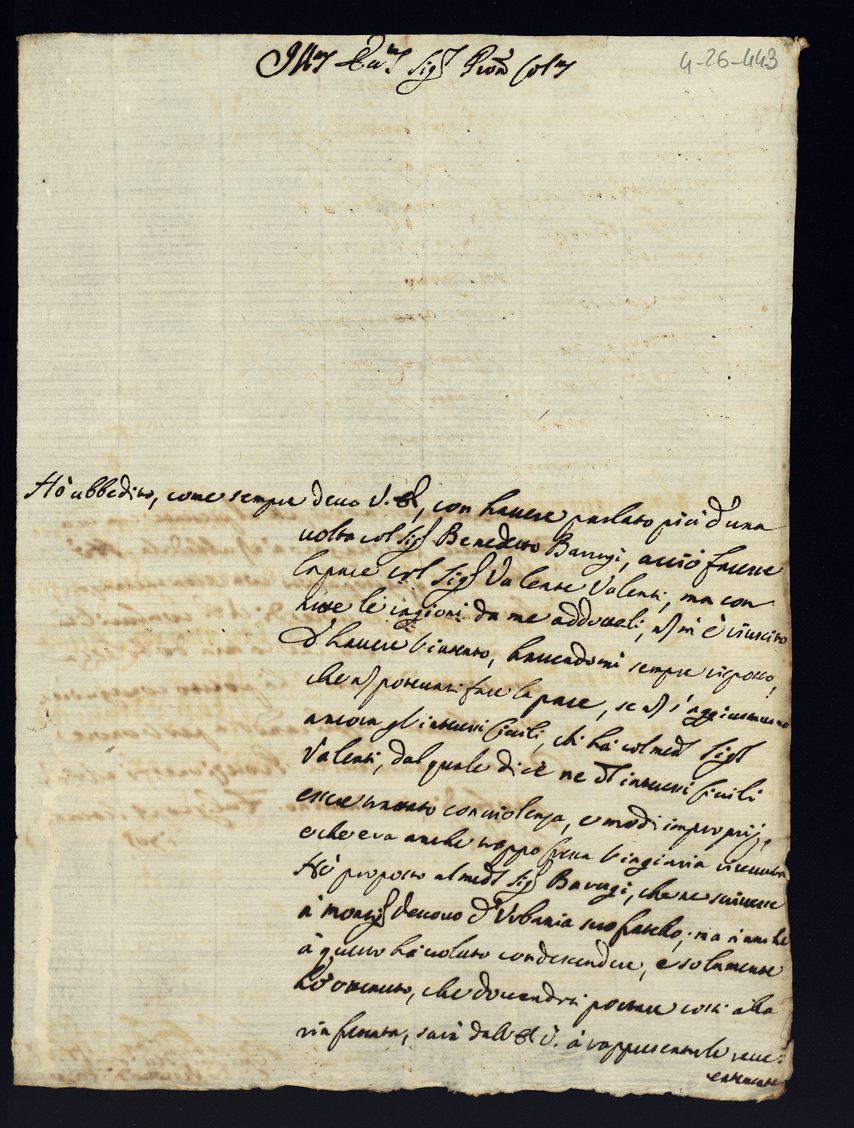 Ill.mo Ecc.mo Sig.r P.ron Col.mo
4-26-443
Hò ubbedito, come sempre devo V.E., con havere parlato più d'una
volta col Sig.r Benedetto Barugi, acciò facesse
la pace col Sig.r Valente Valenti, ma con
tutte le ragioni da me addotteli, nõ m'è riuscito
d'havere l'intento, havendomi sempre risposto,
che nõ poteva fare la pace, se nõ s'aggiustavano
ancora gl'interessi Civili, ch'hà col med.o Sig.r
Valenti, dal quale dice ne d.i interessi Civili
essere trattato con violenza, e modi improprij,
e che era anche troppo fresca l'ingiuria ricevuta
Hò proposto al med.o Sig.r Barugi, che ne scrivesse
à Mons.r Vescovo d'Urbania suo fratello; mà nè anche
à questo hà voluto condescendere, e solamente
hò ottenuto, che dovendosi portare costì alla
via ferrata, sarà dall'E.V. à rappresentarle reve:
rentemente